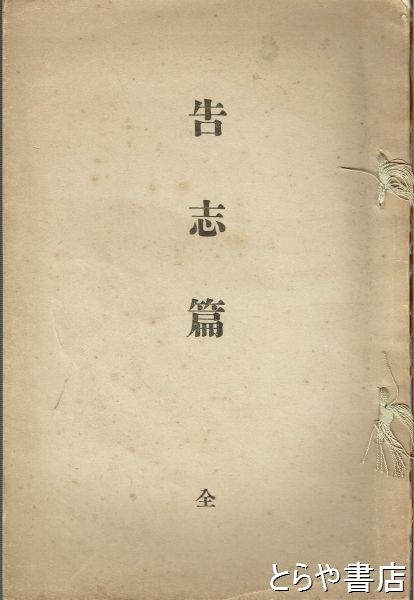 告志篇
全
とらや書店